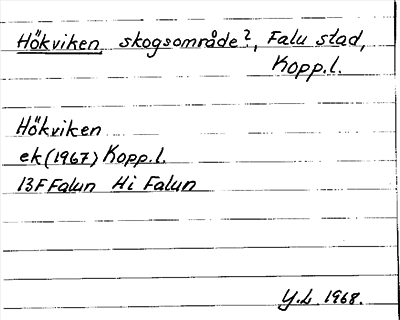 Hökviken skogsområde?, Falu stad,
Kopp.l.
Hökviken
ek (1967) Kopp.l.
13F Falun Hi Falun
Y.L. 1968.